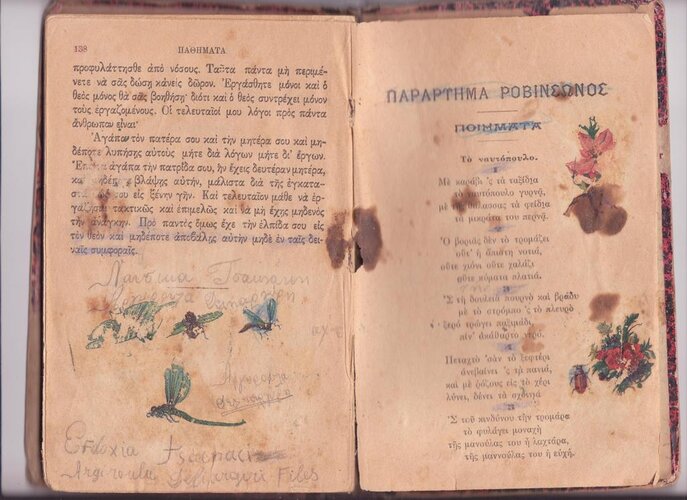 138 ΠΑΘΗΜΑΤΑ
προφυλάττησθε ἀπὸ νόσους. Ταῦτα πάντα μὴ περιμέ-
νετε νὰ σᾶς δώσῃ κἀνεὶς δῶρον. Ἐργάσθητε μόνοι καὶ ὁ
θεὸς μόνος θὰ σᾶς βοηθήσῃ· διότι καὶ ὁ θεὸς συντρέχει μόνον
τοὺς ἐργαζομένους. Οἱ τελευταῖοί μου λόγοι πρὸς πάντα
ἄνθρωπον εἶναι·
Ἀγάπα τὸν πατέρα σου καὶ τὴν μητέρα σου καὶ μη-
δέποτε λυπήσῃς αὐτοὺς μήτε διὰ λόγων μήτε δι' ἔργων.
ἀγάπα τὴν πατρίδα σου, ἣν ἔχεις δευτέραν μητέρα,
βλάψῃς αὐτήν, μάλιστα διὰ τῆς ἐγκατα-
σου εἰς ξένην γῆν. Καὶ τελευταῖον μάθε νὰ ἐρ-
τακτικῶς καὶ ἐπιμελῶς καὶ νὰ μὴ ἔχῃς μηδενὸς
τὴν ἀνάγκην. Πρὸ παντὸς ὅμως ἔχε τὴν ἐλπίδα σου εἰς
τὸν θεὸν καὶ μηδέποτε ἀποβάλῃς αὐτὴν μηδὲ ἐν ταῖς δει-
ναῖς συμφοραῖς.
Evdoxia
Argiroula Files
ΠΑΡΑΡΤΗΜΑ ΡΟΒΙΝΣΩΝΟΣ
ΠΟΙΗΜΑΤΑ
Τὸ ναυτόπουλο.
Μὲ καράβι 'ς τὰ ταξίδια
τὸ ναυτόπουλο γυρνᾷ,
μὲ θάλασσας τὰ φείδια
τὰ μικρᾶτα του περνᾷ.
Ὁ βοριᾶς δὲν τὸ τρομάζει
οὔτ' ἡ ἄπιστη νοτιά,
οὔτε χιόνι οὔτε χαλάζι
οὔτε κύματα πλατιά.
Σ τὴ δουλειὰ πουρνὸ καὶ βράδυ
μὲ τὸ στρόμπο 'ς τὸ πλευρὸ
ξερὸ τρώγει παξιμάδι
πίν' ἀκάθαρτο νερό.
Πεταχτὸ 'σὰν τὸ ξεφτέρι
ἀνεβαίνει 'ς τὰ πανιά,
καὶ μὲ ῥόζους εἰς τὸ χέρι
λύνει, δένει τὰ σχοινιά
Σ τοῦ κινδύνου τὴν τρομάρα
τὸ φυλάγει μοναχὴ
τῆς μαννούλας του ἡ λαχτάρα,
τῆς μαννούλας του ἡ εὐχή.